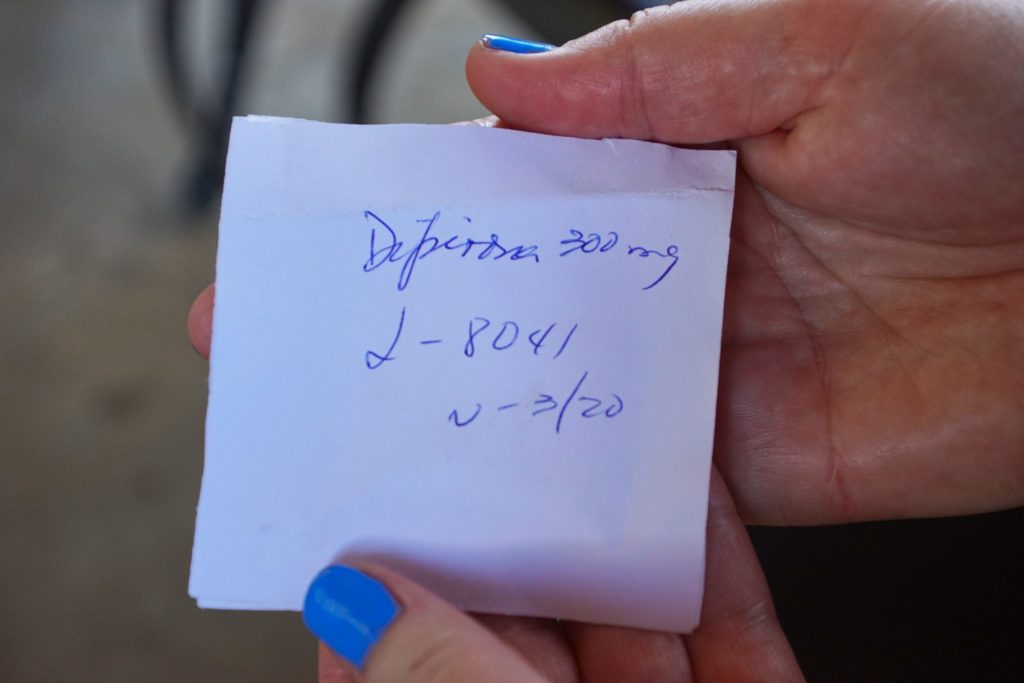 Dipirona 300 mg
L - 8041
V - 3/20